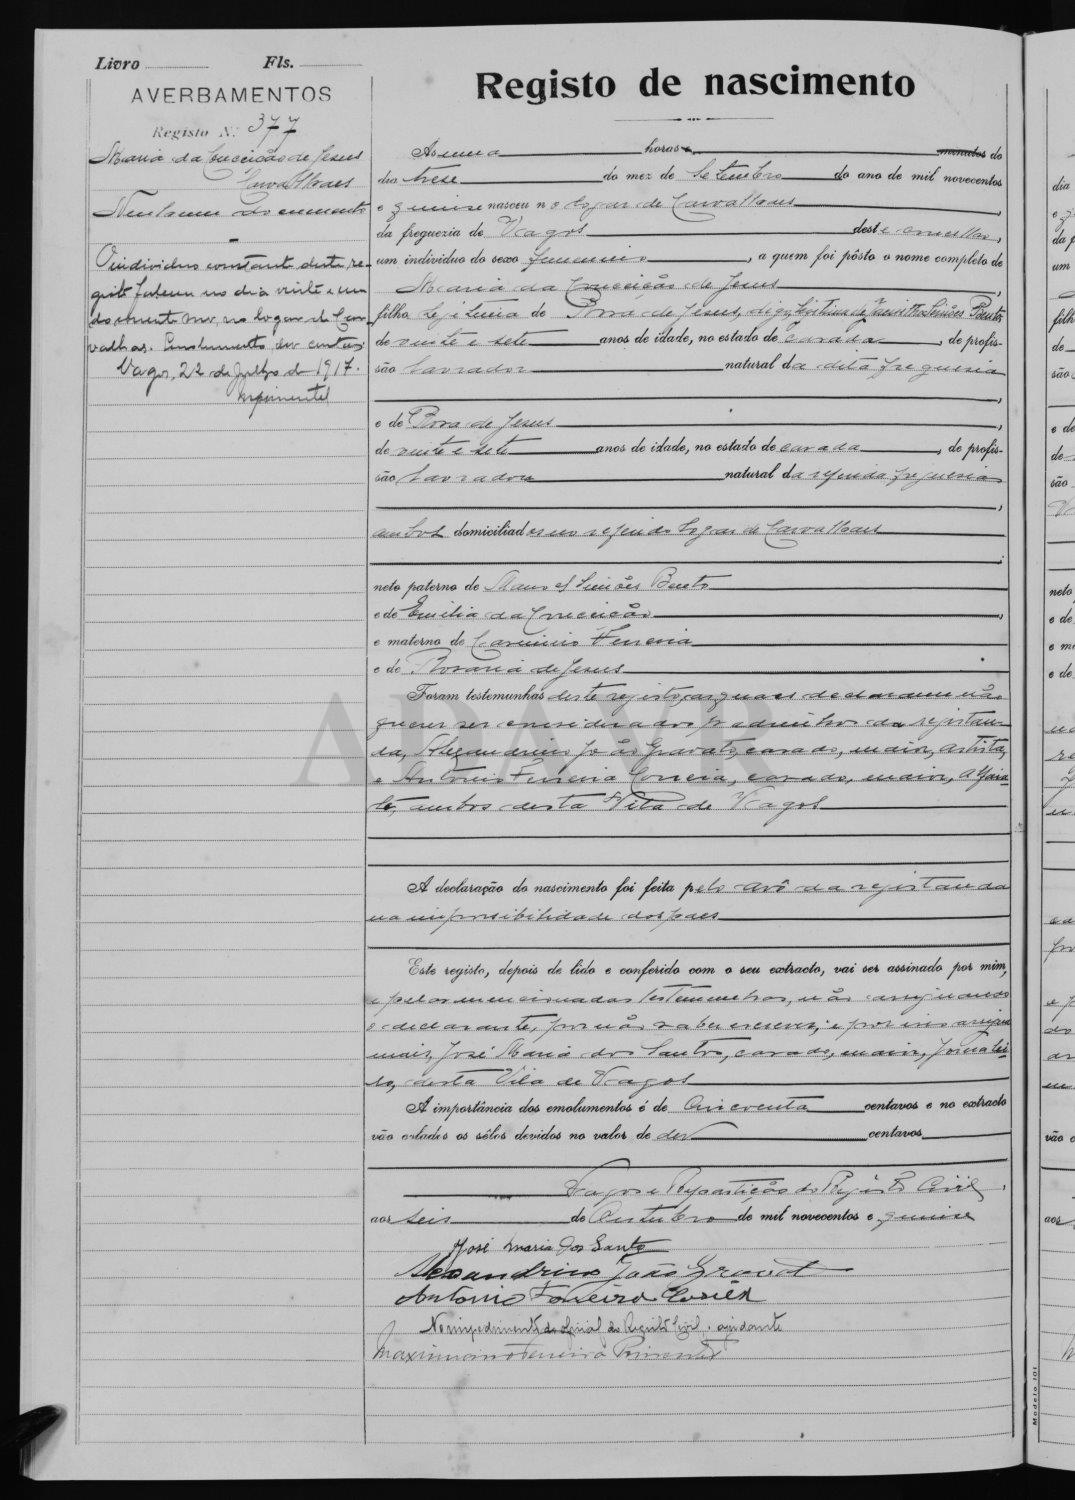 Livro Fls.
AVERBAMENTOS
Registo N.º 377
Maria da Conceição de Jesus
Carvalhaes
Nenhum documento
O individuo constante deste re-
gisto faleceu no dia vinte e um
do corrente mez, no logar de Car-
valhaes.
Vagos, 22 de Julho de 1917.
Mpimentel
Registo de nascimento
Ás uma horas e minutos do
dia trese do mez de Setembro do ano de mil novecentos
e quinse nasceu no logar de Carvalhaes,
da freguezia de Vagos deste concelho,
um individuo do sexo femenino, a quem foi pôsto o nome completo de
Maria da Conceição de Jesus,
filha legitima de Rosa de Jesus, digo, Simões Bento
de vinte e sete anos de idade, no estado de casado, de profis-
são lavrador natural da dita freguesia
,
e de Rosa de Jesus,
de vinte e sete anos de idade, no estado de casada, de profis-
são lavradora natural da referida freguesia
,
ambos domiciliados no referido logar de Carvalhaes
;
neto paterno de Manoel Simões Bento
e de Emilia da Conceição,
e materno de Carminio Ferreira
e de Rosaria de Jesus.
Foram testemunhas deste registo, as quaes declararam não
querer ser considerados padrinhos da registan-
da, Alexandrino João Gravato, casado, maior, artista,
e Antonio Ferreira Correia, casado, maior, alfaia-
te, ambos desta Vila de Vagos
ADAVR
A declaração do nascimento foi feita pelo avô da registanda
na impossibilidade dos paes
Este registo, depois de lido e conferido com o seu extracto, vai ser assinado por mim,
e pelas mencionadas testemunhas, não assignando
o declarante, por não saber escrever, e por isso assigna
mais, José Maria dos Santos, casado, maior, jornalei-
ro, desta Vila de Vagos
A importância dos emolumentos é de cincoenta centavos e no extracto
vão colados os sêlos devidos no valor de dez centavos
Vagos e Repartição do Registo Civil,
aos seis de Outubro de mil novecentos e quinse
José Maria dos Santos
Alexandrino João Gravato
Antonio Ferreira Correia
No impedimento do oficial do Registo Civil, o ajudante
Maximiano Ferreira Pimentel
Modelo 101